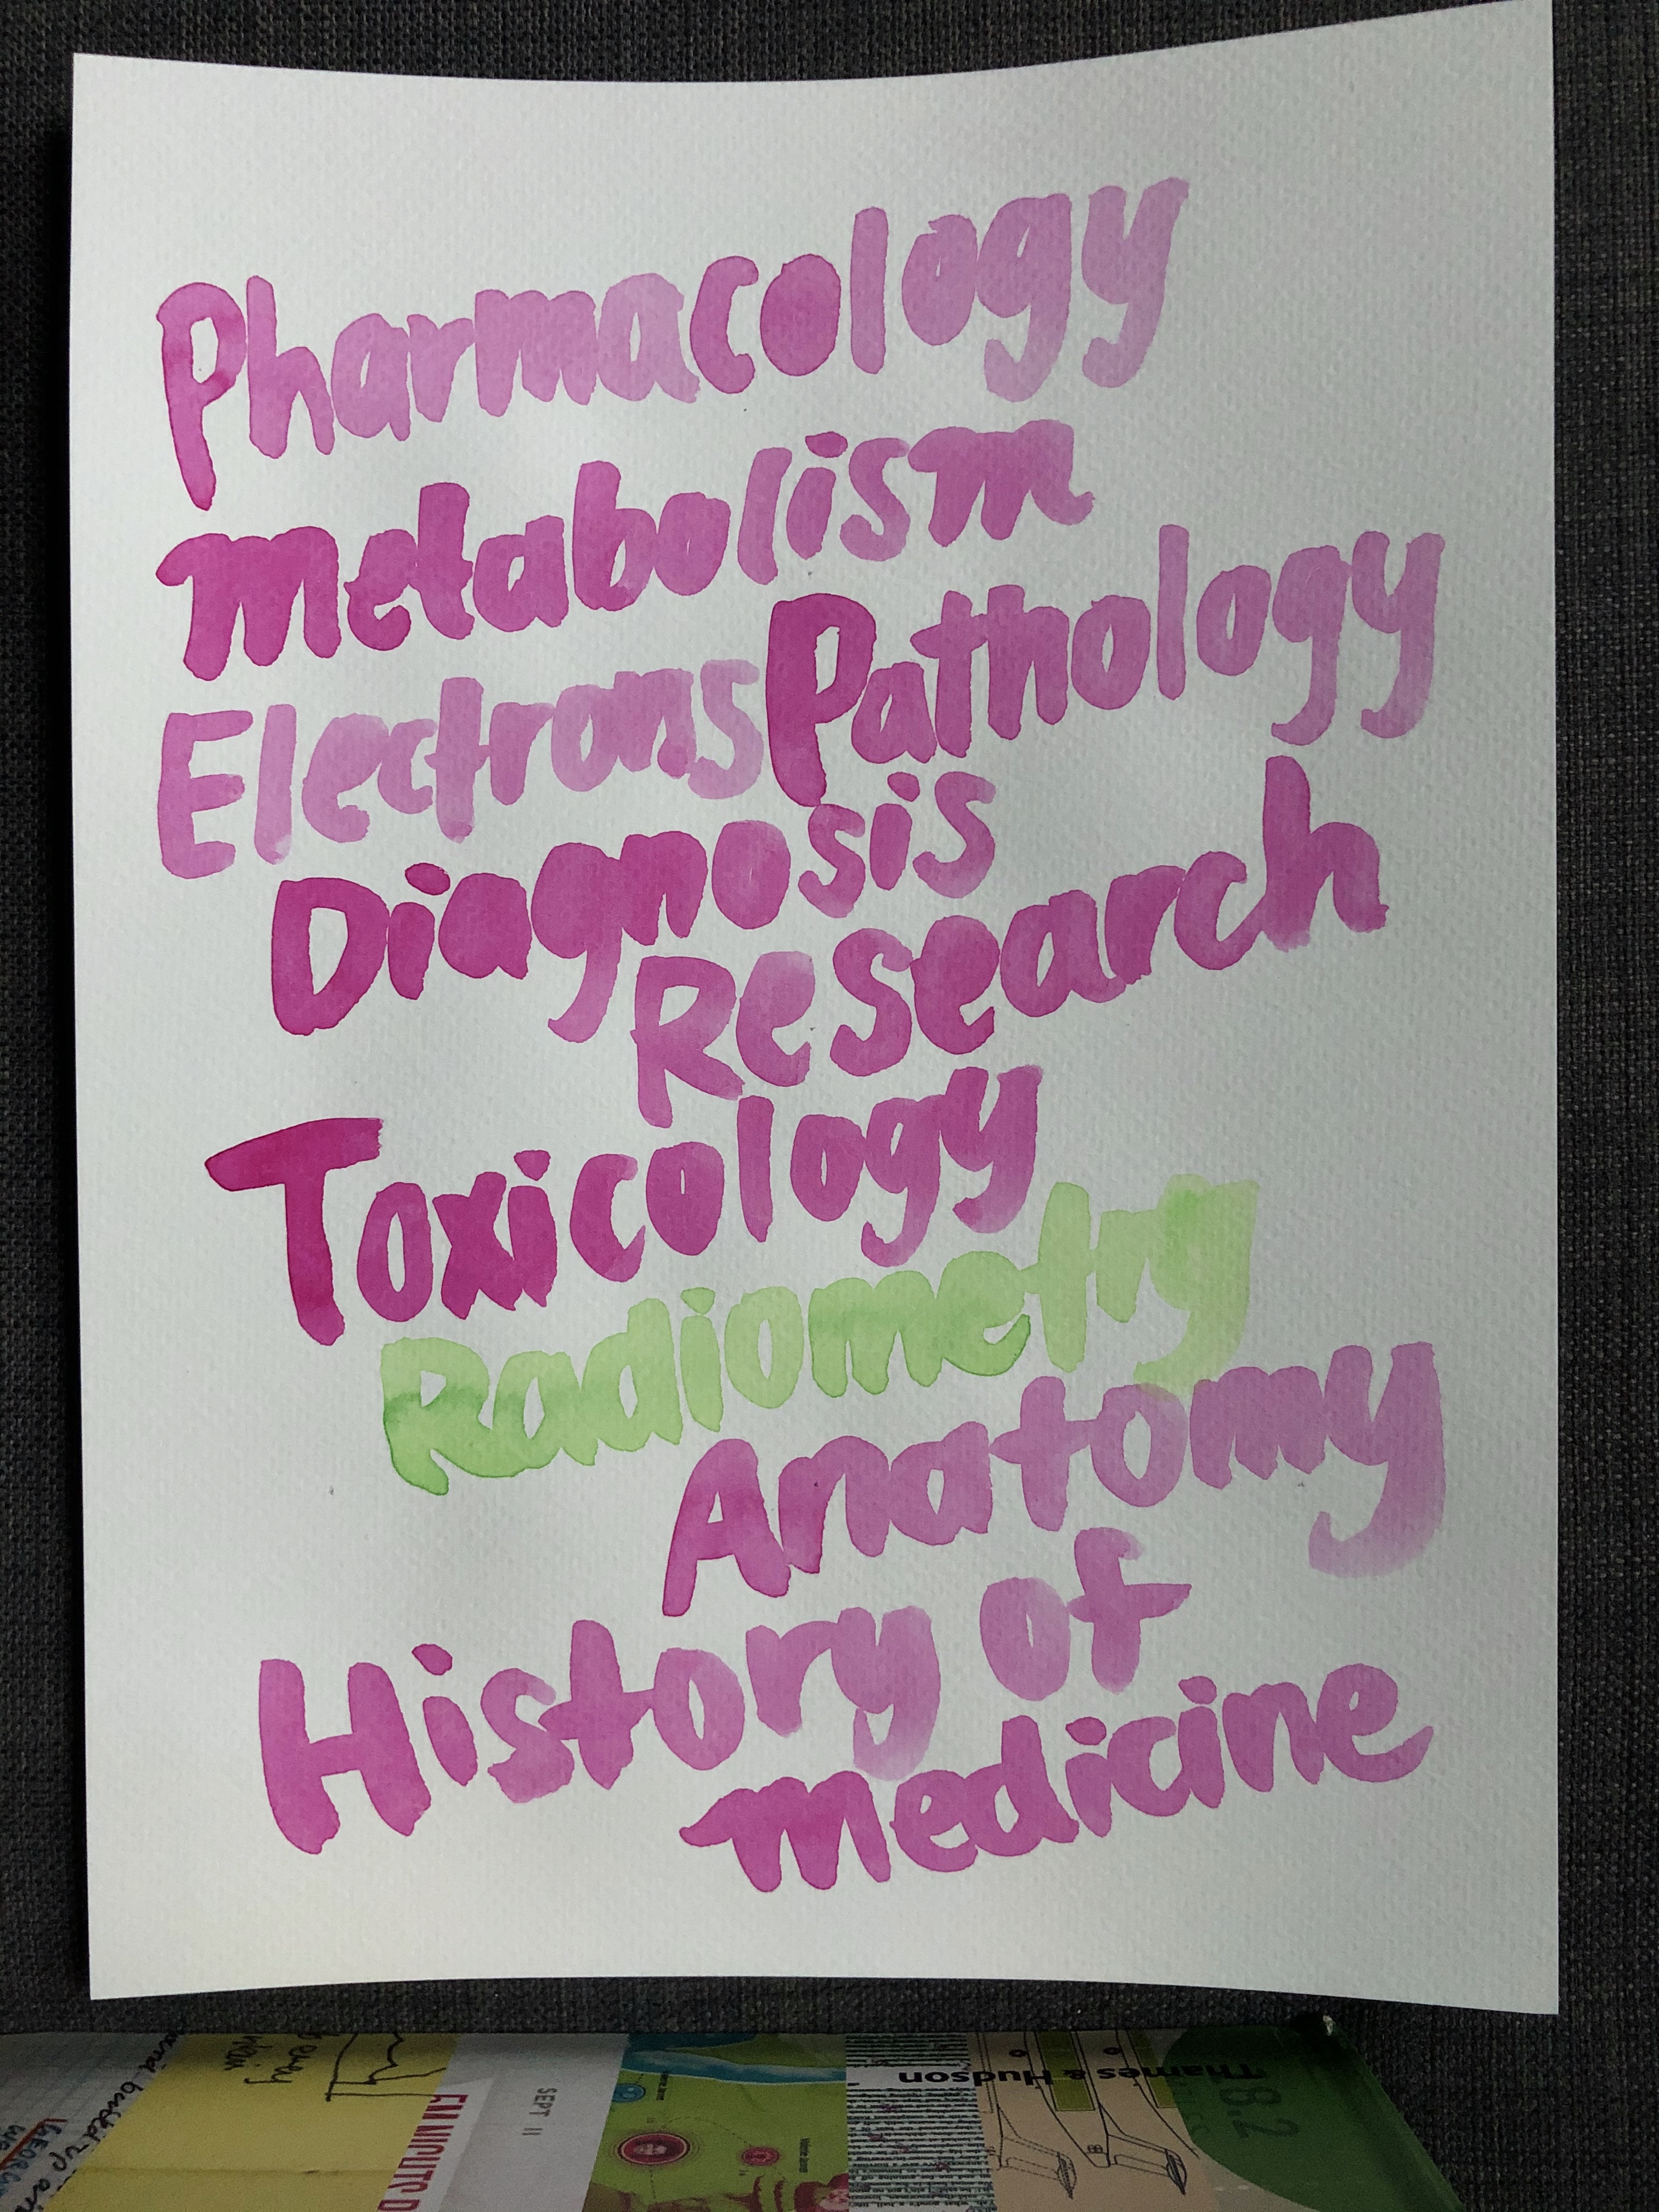 Pharmacology
metabolism
Electrons Pathology
Diagnosis
Research
Toxicology
Radiometry
Anatomy
History of
medicine
Thames & Hudson
SEPT 11